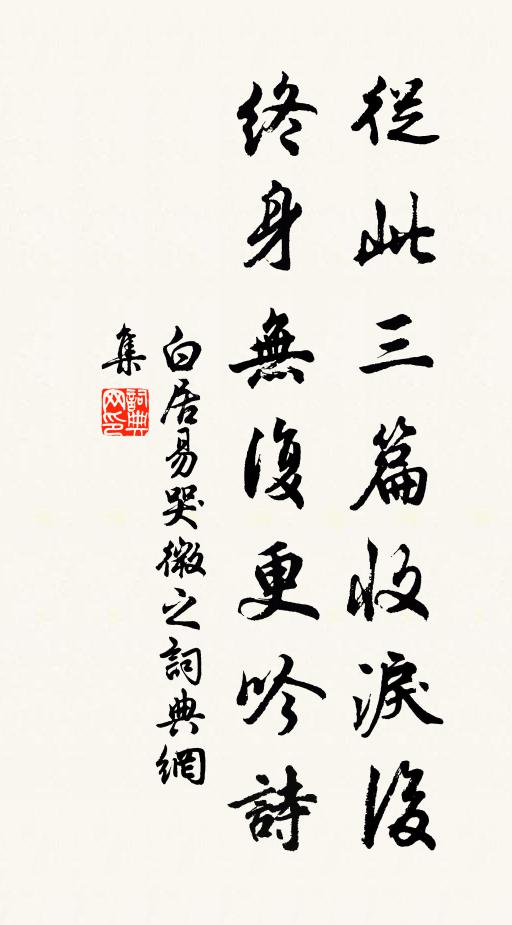 從此三篇收淚後
終身無復更吟詩
白居易哭微之詞典網
集
詞典
网印